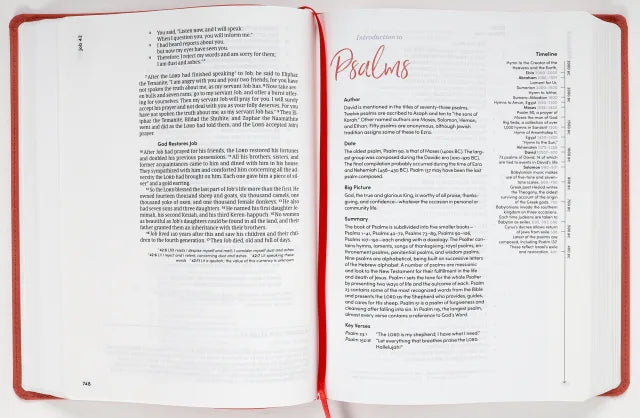 Job 42
4 You said, "Listen now, and I will speak.
When I question you, you will inform me."
5 I had heard reports about you,
but now my eyes have seen you.
6 Therefore, I reject my words and am sorry for them;
I am dust and ashes.
7 After the LORD had finished speaking to Job, he said to Eliphaz
the Temanite, "I am angry with you and your two friends, for you have
not spoken the truth about me, as my servant Job has. 8 Now take seven
bulls and seven rams, go to my servant Job, and offer a burnt offer-
ing for yourselves. Then my servant Job will pray for you. I will surely
accept his prayer and not deal with you as your folly deserves. For you
have not spoken the truth about me, as my servant Job has." 9 Then Eli-
phaz the Temanite, Bildad the Shuhite, and Zophar the Naamathite
went and did as the LORD had told them, and the LORD accepted Job's
prayer.
God Restores Job
10 After Job had prayed for his friends, the LORD restored his fortunes
and doubled his previous possessions. 11 All his brothers, sisters, and
former acquaintances came to him and dined with him in his house.
They sympathized with him and comforted him concerning all the ad-
versity the LORD had brought on him. Each one gave him a piece of sil-
ver and a gold earring.
12 So the LORD blessed the last part of Job's life more than the first. He
owned fourteen thousand sheep and goats, six thousand camels, one
thousand yoke of oxen, and one thousand female donkeys. 13 He
also had seven sons and three daughters. 14 He named his first daughter Je-
mimah, his second Keziah, and his third Keren-happuch. 15 No women
as beautiful as Job's daughters could be found in all the land, and their
father granted them an inheritance with their brothers.
16 Job lived 140 years after this and saw his children and their chil-
dren to the fourth generation. 17 Then Job died, old and full of days.
748
Introduction to
Psalms
Author
David is mentioned in the titles of seventy-three psalms.
Twelve psalms are ascribed to Asaph and ten to "the sons of
Korah." Other named authors are Moses, Solomon, Heman,
and Ethan. Fifty psalms are anonymous, although Jewish
tradition assigns some of these to Ezra.
Date
The oldest psalm, Psalm 90, is that of Moses (1400s BC). The larg-
est group was composed during the Davidic era (1010–970 BC).
The final compilation probably occurred during the time of Ezra
and Nehemiah (458–445 BC). Psalm 137 may have been the last
psalm composed.
Big Picture
God, the true and glorious King, is worthy of all praise, thanks-
giving, and confidence—whatever the occasion in personal or
community life.
Summary
The book of Psalms is subdivided into five smaller books—
Psalms 1–41, Psalms 42–72, Psalms 73–89, Psalms 90–106,
Psalms 107–150—each ending with a doxology. The Psalter con-
tains hymns, laments, songs of thanksgiving, royal psalms, en-
thronement psalms, penitential psalms, and wisdom psalms.
Nine psalms are alphabetical, being built on successive letters
of the Hebrew alphabet. A number of psalms are messianic
and look to the New Testament for their fulfillment in the life
and death of Jesus. Psalm 1 sets the tone for the whole Psalter
by presenting two ways of life and the outcome of each. Psalm
23 contains some of the most recognized words from the Bible
and presents the LORD as the Shepherd who provides, guides,
and cares for his sheep. Psalm 51 is a psalm of forgiveness and
cleansing after falling into sin. In Psalm 119, the longest psalm,
almost every verse contains a reference to God's Word.
Key Verses
Psalm 23:1 "The LORD is my shepherd; I have what I need."
Psalm 150:6 "Let everything that breathes praise the LORD.
Hallelujah!"
Timeline
Hymn to the Creator of the
Heavens and the Earth,
Lament for Ur,
Hymn to Amun, Egypt
Psalm 90, a prayer of
Moses the man of God
Rig Veda, a collection of over
1,000 hymns in Sanskrit
Hymn of Amenhotep II,
Egypt
"Hymn to the Sun,"
73 psalms of David, 14 of which
are tied to events in David's life